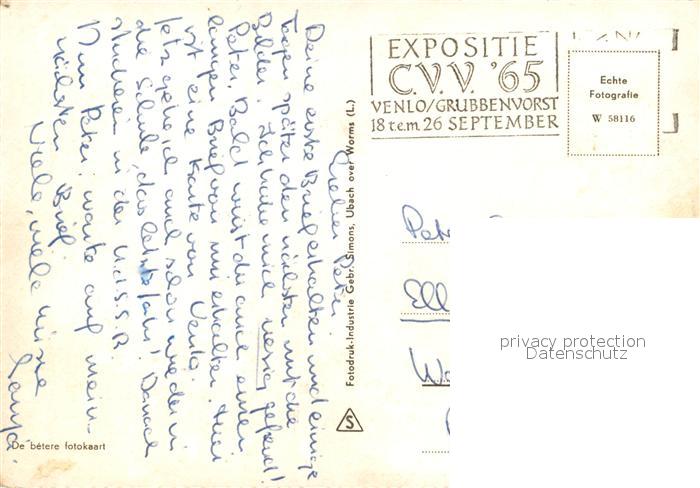 Lieber Peter!
Deine erste Brief erhalten und einige
Tagen später den nächsten mit die
Bilder. Ich habe mich riesig gefreut!
Peter, Bald wirst du auch einen
langen Brief von mir erhalten. Hier
ist eine Karte von Venlo.
Jetz gehe ich auch schon wieder in
die Schule, das letzte Jahr! Danach
studieren in der U.d.S.S.R.
Nun Peter: warte auf mein-
nächsten Brief.
Viele, viele Küsse
De bétere fotokaart
Fotodruk-Industrie Gebr. Simons, Ubach over Worms (L.)
S
EXPOSITIE
C.V.V. '65
VENLO/GRUBBENVORST
18 t.e.m. 26 SEPTEMBER
Echte
Fotografie
W 58116
Pet
Ell
privacy protection
Datenschutz